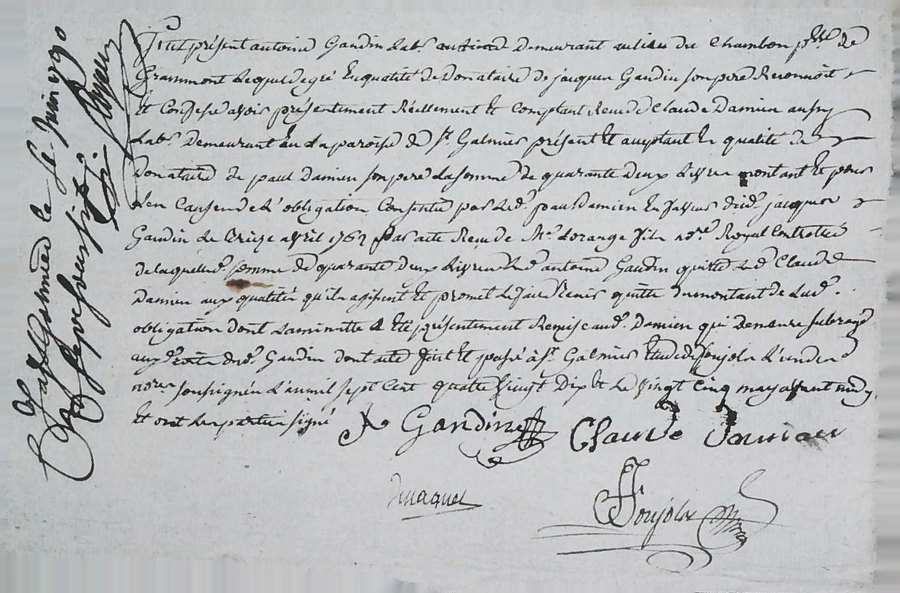 fut présent antoine Gaudin lab.r en Demeurant au lieu du Chambon p.sse de
Grammont lequel de gré En qualité de Donataire de jacques Gaudin son pere Reconnoit
Et Confesse avoir présentement Réellement Et Comptant Reçu de Claude Damien aussy
Lab.r Demeurant En La paroisse de S.t Galmier présent Et acceptant En qualité de
Donataire de paul Damien son pere La somme de quarante deux Livres montant Et pour
Les Causes de L'obligation Consentie par led. paul Damien En faveur dud. jacques
Gaudin Le treize avril 1762 par acte Reçu de M.e Lorange no.re Royal Controllé
de laquelle somme de quarante deux Livres Led. antoine Gaudin quitte Led. Claude
Damien aux qualités qu'ils agissent Et promet Le faire tenir quitte du montant de Lad.
obligation dont La minutte a Eté présentement Remise aud. Damien qui demeure subrogé
aux droits dud. Gaudin dont acte fait Et passé à S.t Galmier Etude de Soujolx L'un des
no.res soussignés L'an mil sept Cent quatre Vingt Dix Et Le Vingt Cinq may avant midy
Et ont Les parties signé
A Gaudin Claude Damien
Soujolx
le 5 Juin 1790